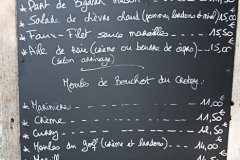 * Part de
* Salade de chèvre chaud (pommes, lardons et miel) 15,00
* Faux-Filet sauce 15,50
* Aile de raie (crème ou beurre de câpre) 15,50
(selon arrivage)
Moules de Bouchot du
* Marinière 11,00
* Crème 11,50
* Curry 12,50
* Moules du golf (crème et lardons) 14,00